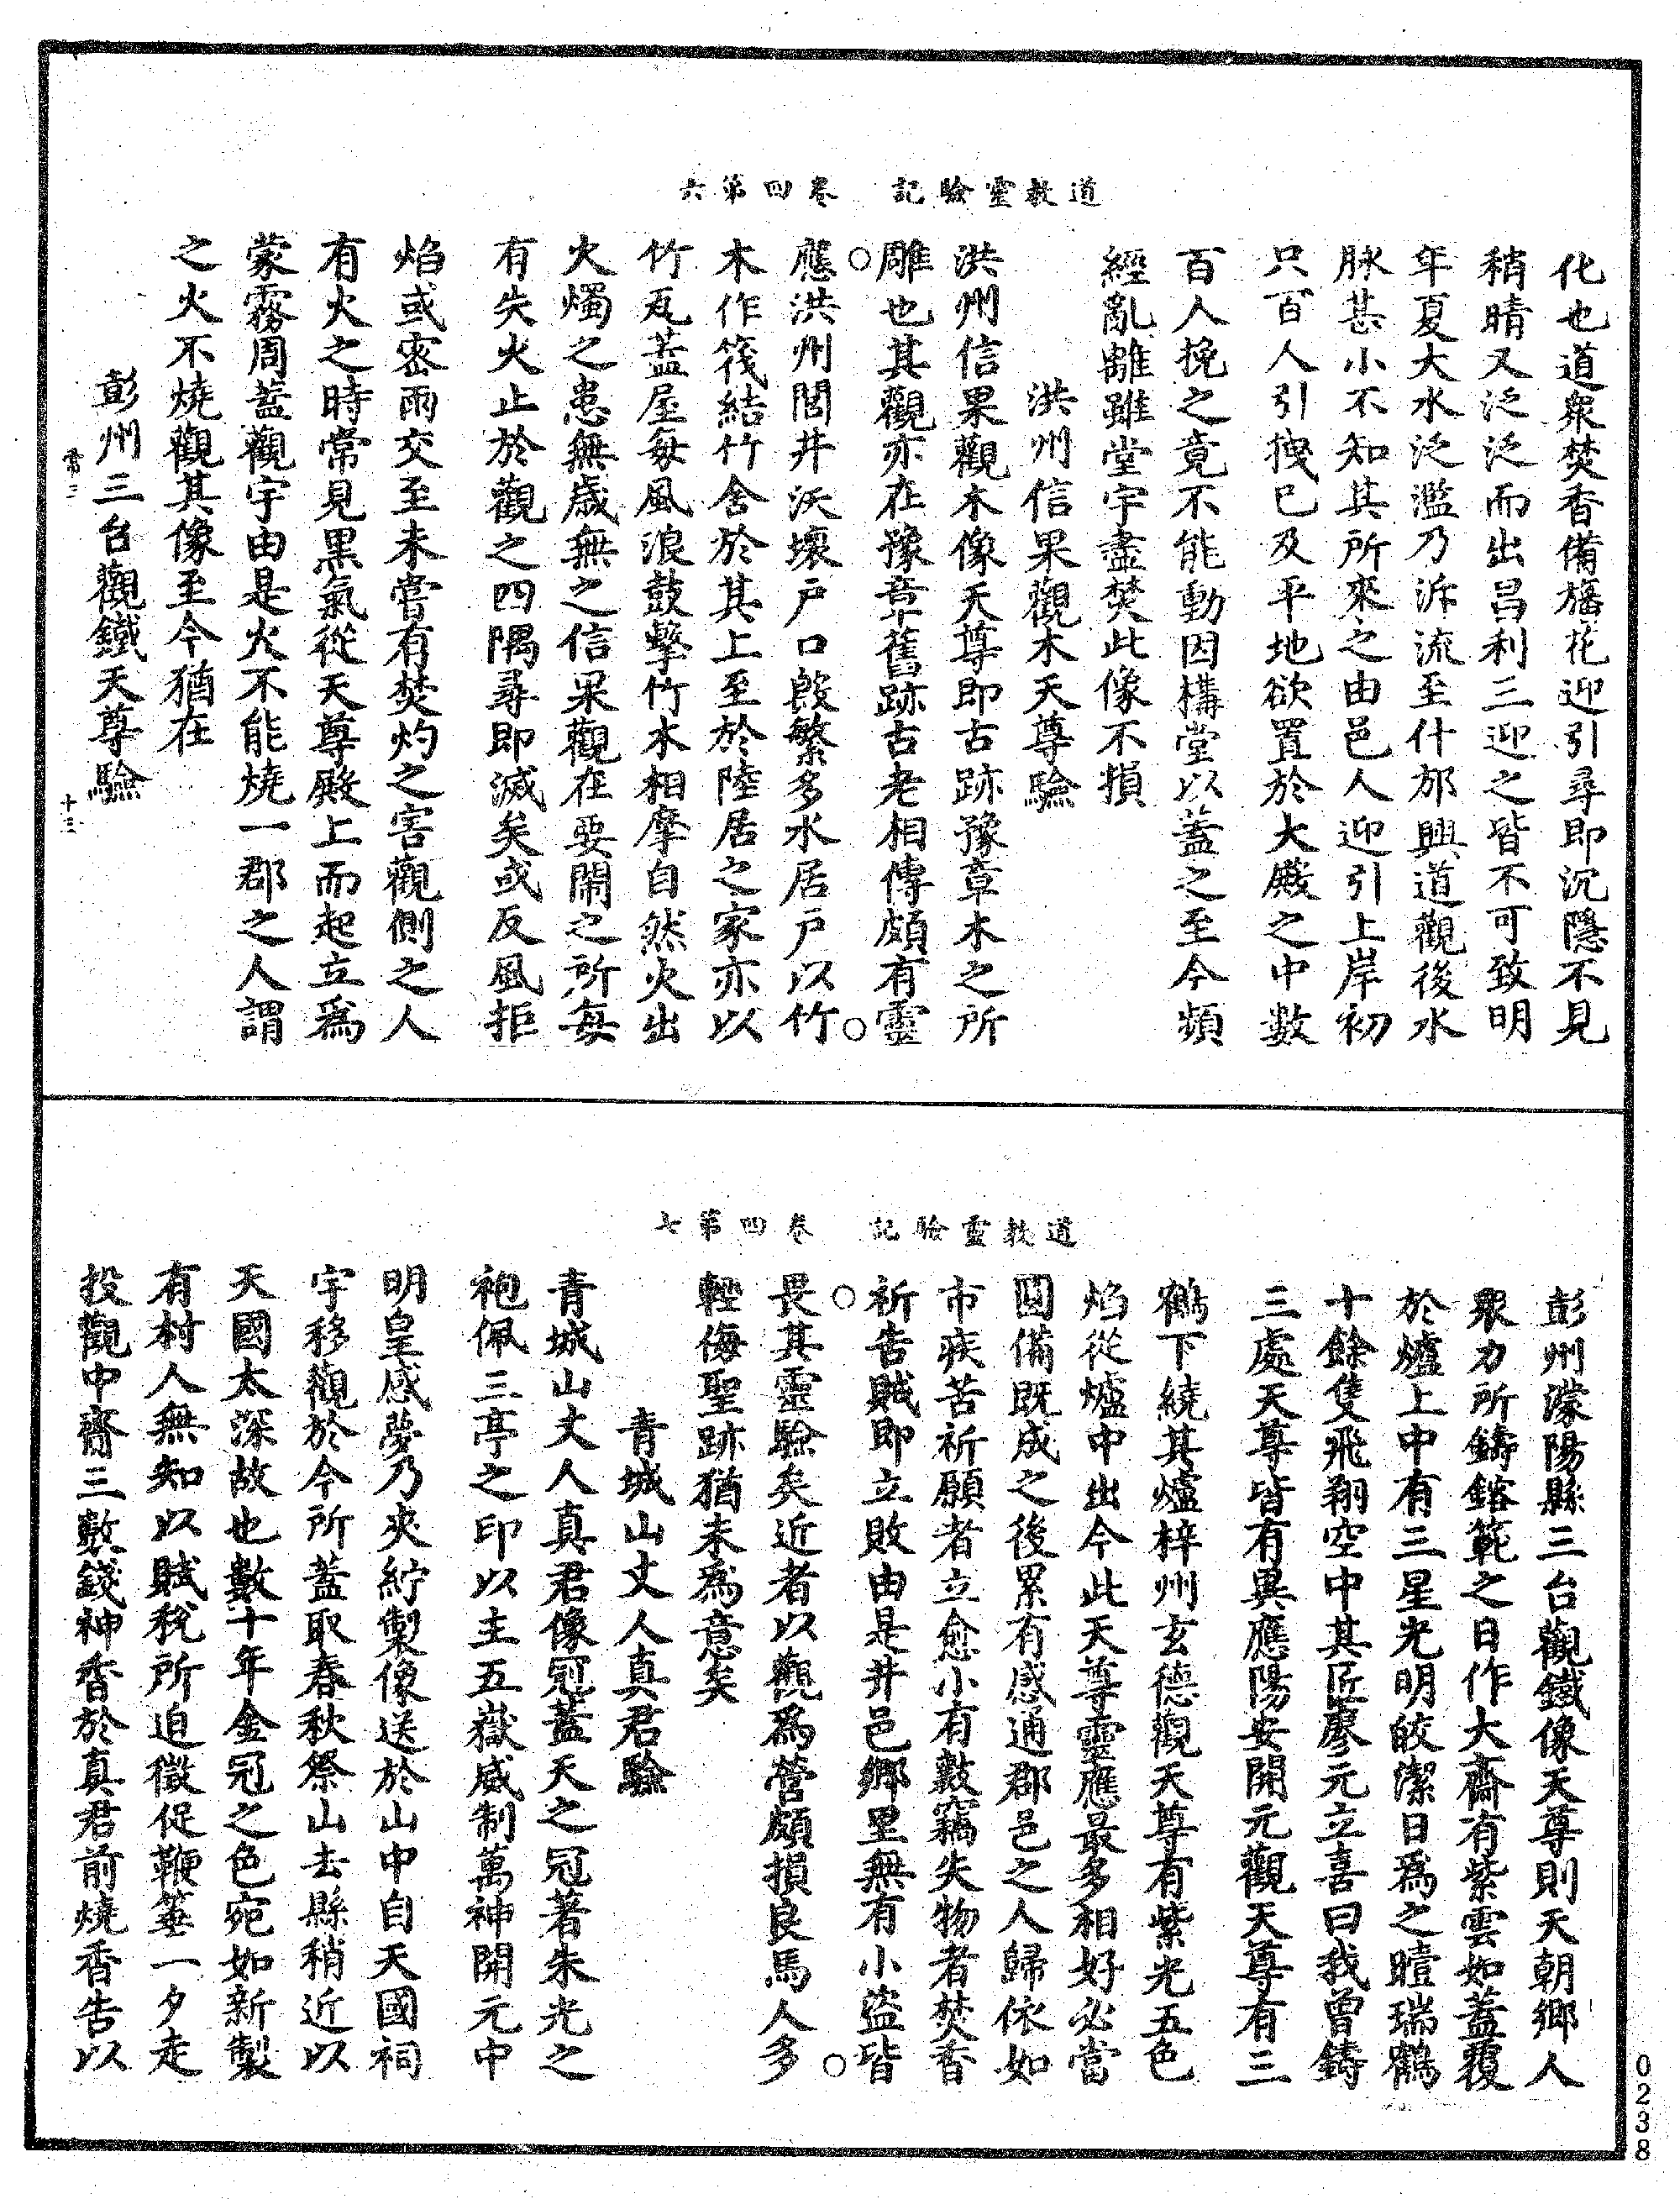 道教靈驗記　卷四第六
化也道衆焚香備旛花迎引尋即沉隱不見
稍晴又泛泛而出昌利三迎之皆不可致明
年夏大水泛濫乃泝流至什邡興道觀後水
脉甚小不知其所來之由邑人迎引上岸初
只百人引拽已及平地欲置於大殿之中數
百人挽之竟不能動因構堂以蓋之至今頻
經亂離雖堂宇盡焚此像不損
洪州信果觀木天尊驗
洪州信果觀木像天尊即古跡豫章木之所
雕也其觀亦在豫章舊跡古老相傳頗有靈
應洪州閭井沃壤戶口殷繁多水居戶以竹
木作筏結竹舍於其上至於陸居之家亦以
竹瓦蓋屋每風浪鼓擊竹木相摩自然火出
火燭之患無歲無之信果觀在要鬧之所每
有失火止於觀之四隅尋即滅矣或反風拒
焰或密雨交至未嘗有焚灼之害觀側之人
有火之時常見黑氣從天尊殿上而起立爲
蒙霧周蓋觀宇由是火不能燒一郡之人謂
之火不燒觀其像至今猶在
彭州三台觀鐵天尊驗
十三
道教靈驗記　卷四第七
彭州濛陽縣三台觀鐵像天尊則天朝鄉人
衆力所鑄鎔範之日作大齋有紫雲如蓋覆
於爐上中有三星光明皎潔日爲之曀瑞鶴
十餘隻飛翔空中其匠廖元立喜曰我曾鑄
三處天尊皆有異應陽安開元觀天尊有三
鶴下繞其爐梓州玄德觀天尊有紫光五色
焰從爐中出今此天尊靈應最多相好必當
圓備既成之後累有感通郡邑之人歸依如
市疾苦祈願者立愈小有數竊失物者焚香
祈告賊即立敗由是井邑鄉里無有小盜皆
畏其靈驗矣近者以觀爲營頗損良馬人多
輕侮聖跡猶未爲意矣
青城山丈人真君驗
青城山丈人真君像冠蓋天之冠著朱光之
袍佩三亭之印以主五嶽威制萬神開元中
明皇感夢乃夾紵製像送於山中自天國祠
宇移觀於今所蓋取春秋祭山去縣稍近以
天國太深故也數十年金冠之色宛如新製
有村人無知以賦稅所迫徵促鞭箠一夕走
投觀中齎三數錢神香於真君前燒香告以
0238